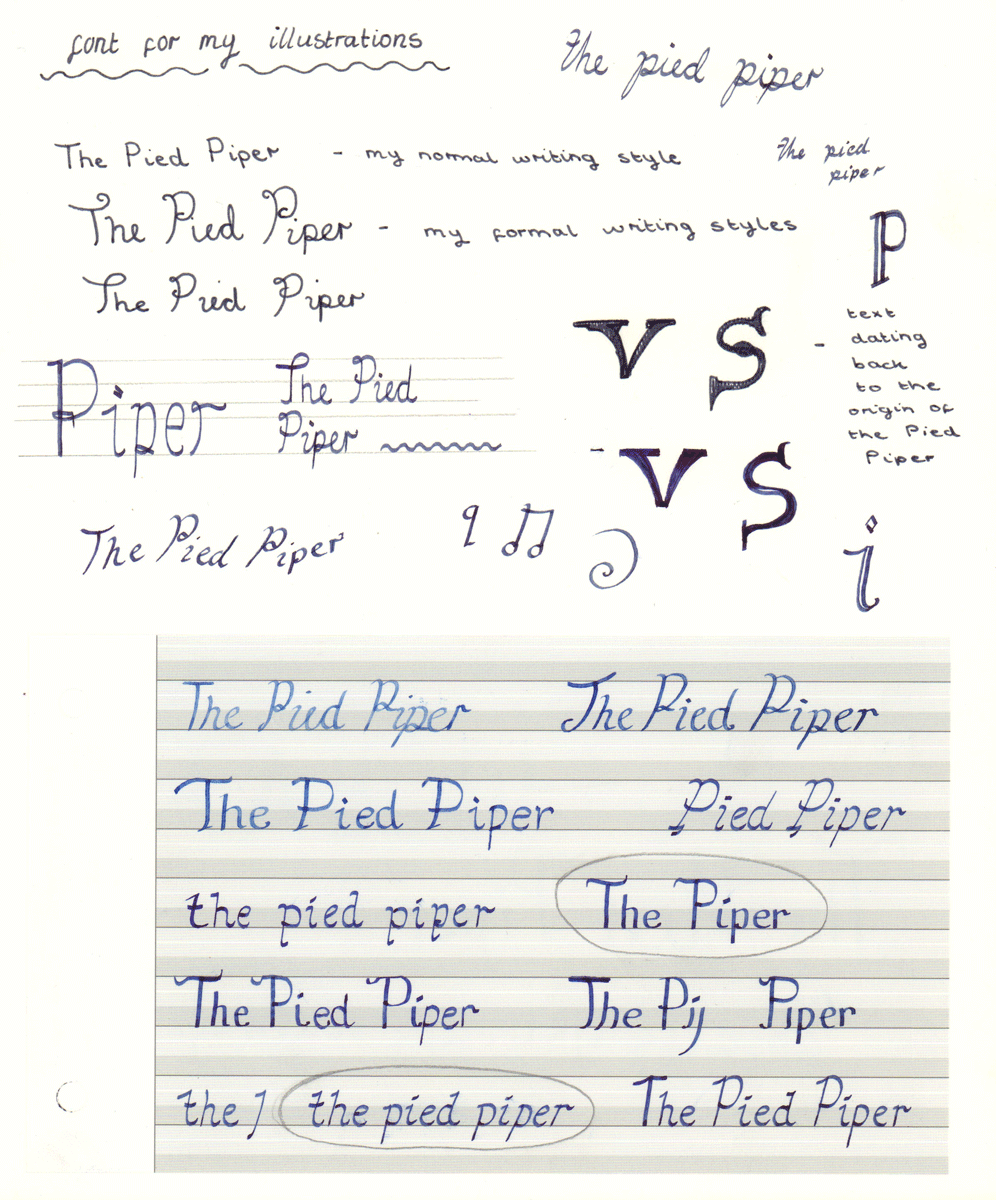 font for my illustrations
the pied piper
The Pied Piper - my normal writing style
the pied
piper
The Pied Piper - my formal writing styles
P
The Pied Piper
v s - text
dating
back
to the
origin of
the Pied
Piper
Piper
The Pied
Piper
- v s
The Pied Piper
9
i
The Pied Piper
The Pied Piper
The Pied Piper
Pied Piper
the pied piper
The Piper
The Pied Piper
The Pij Piper
the J
the pied piper
The Pied Piper